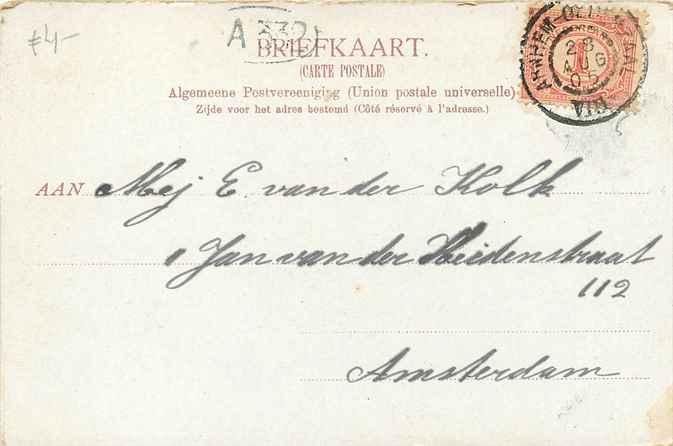 £4-
A 332
BRIEFKAART.
(CARTE POSTALE)
Algemeene Postvereeniging (Union postale universelle)
Zijde voor het adres bestemd (Côté réservé à l'adresse.)
28
AUG
05
AAN Mej E. van der Kolk
1 Jan van der Heidenstraat
112
Amsterdam